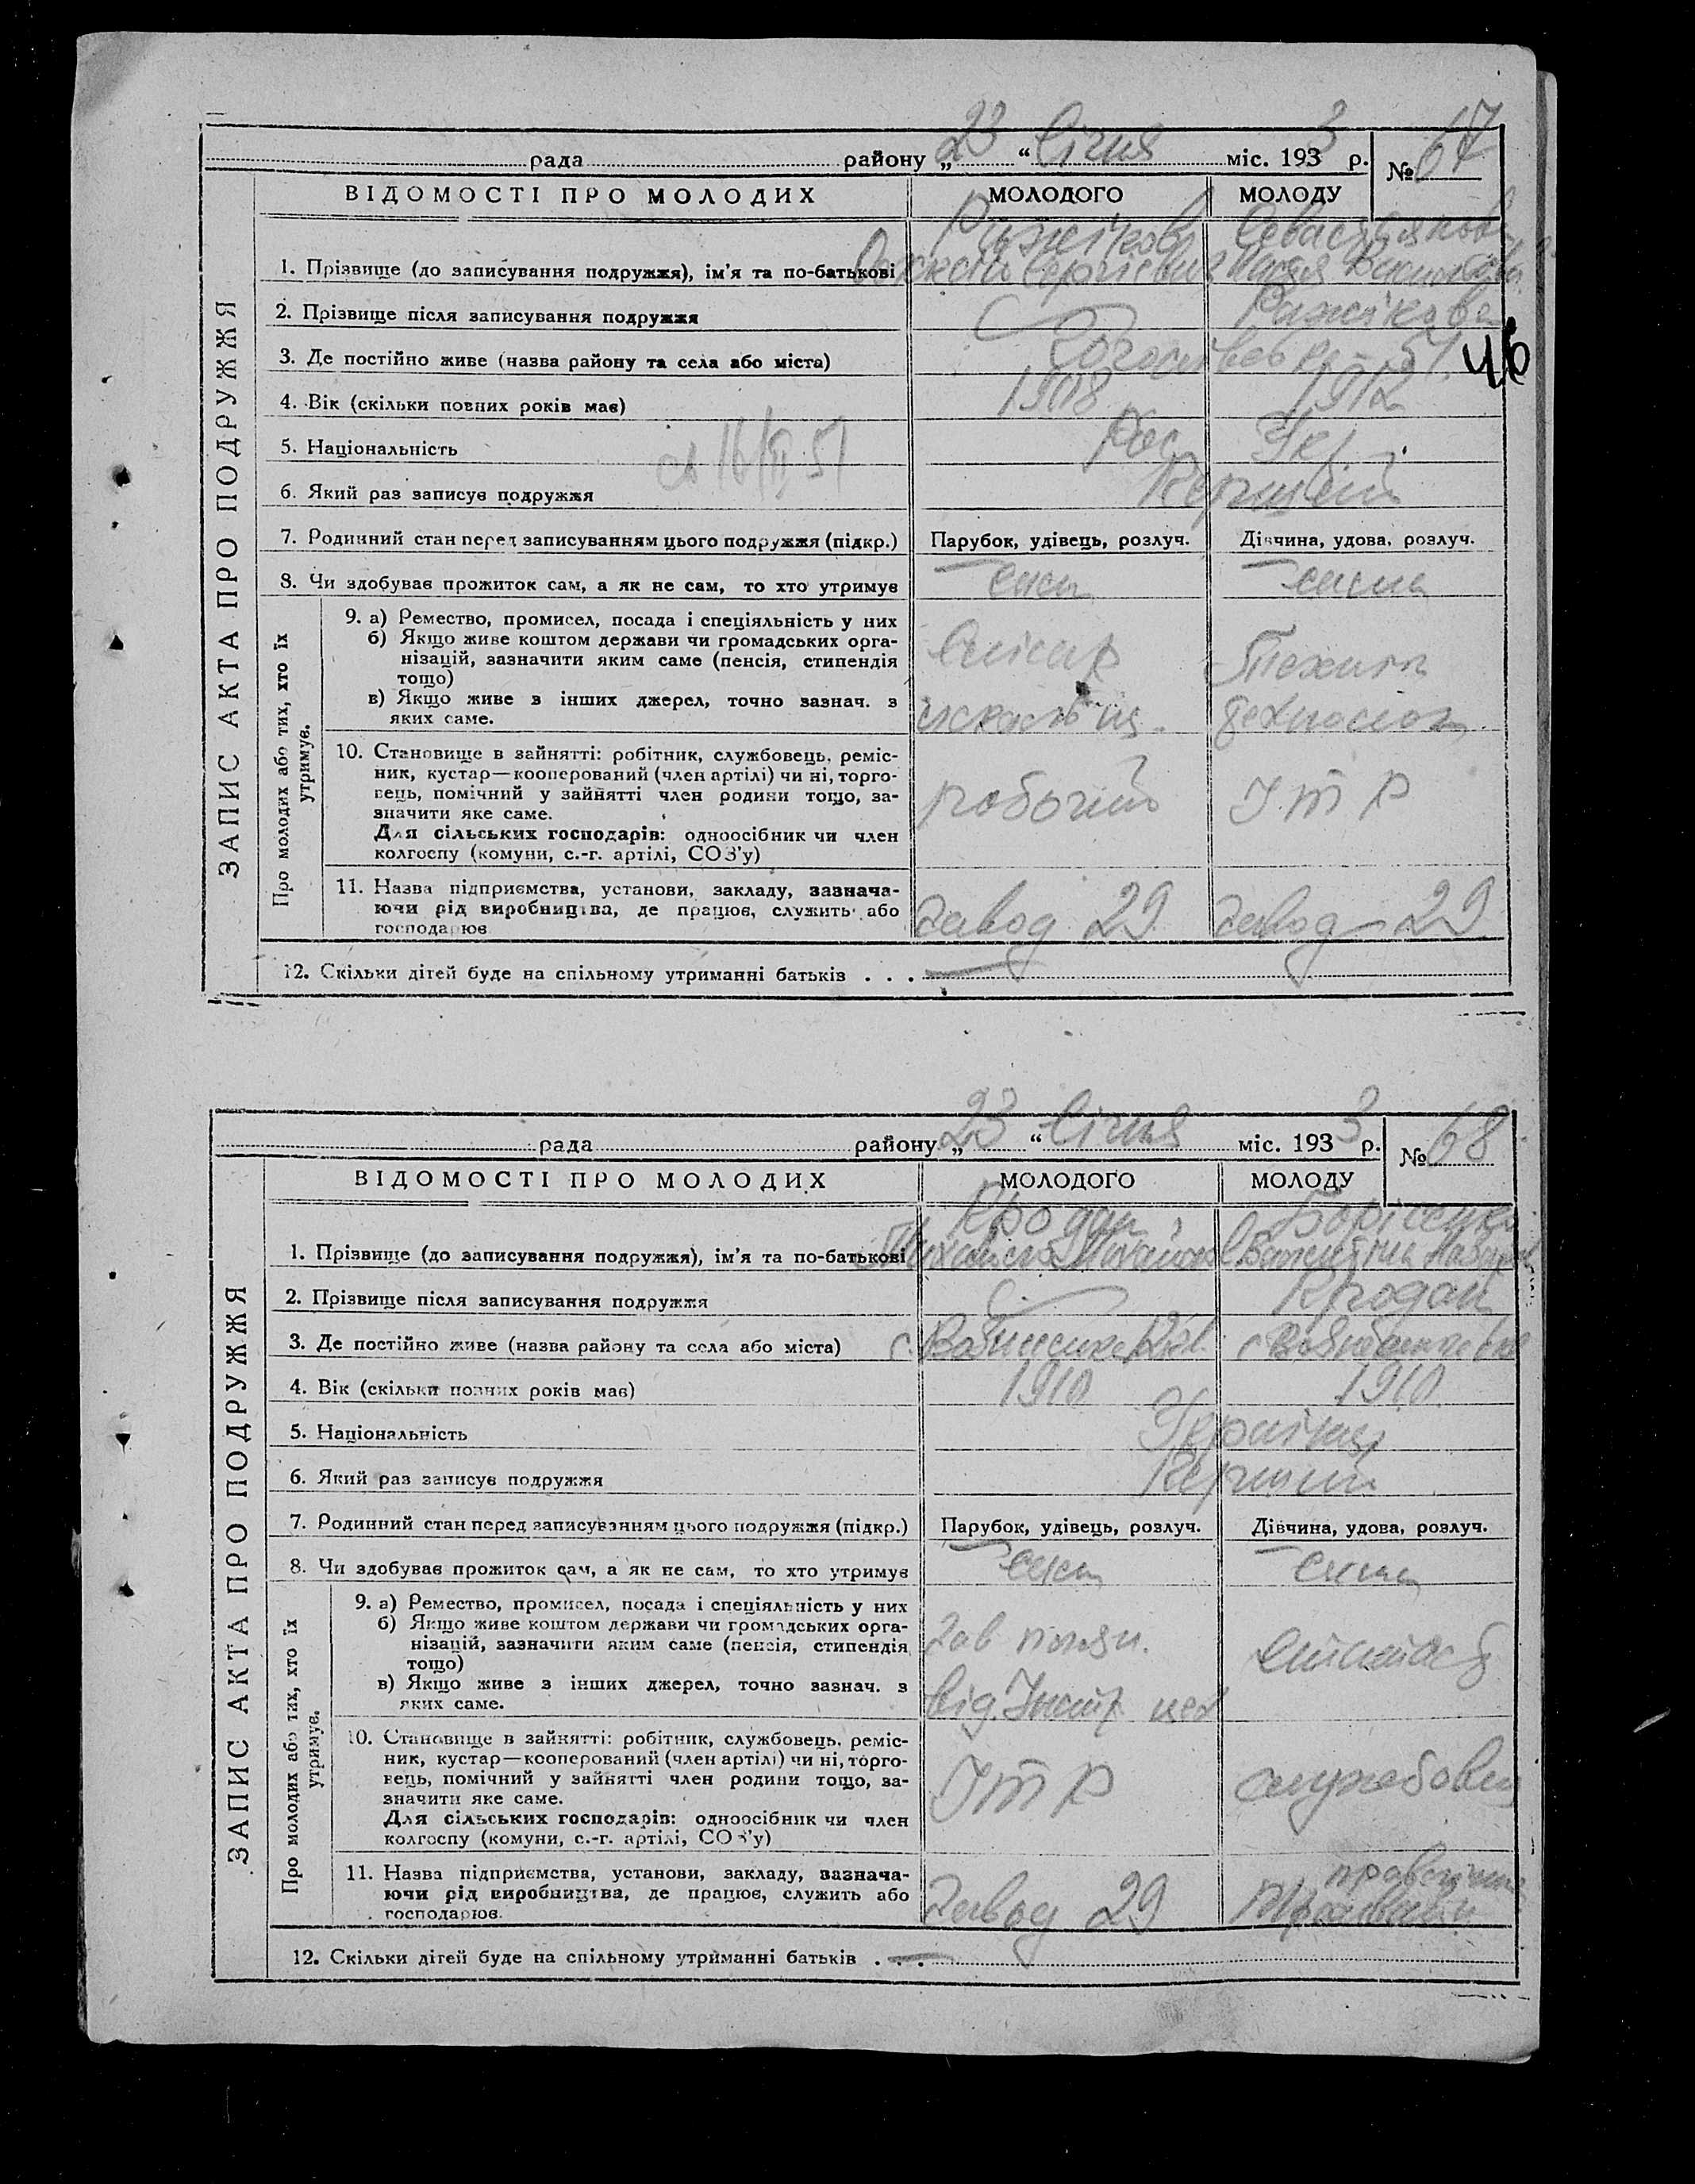 рада района „ 23 “ Січня міс. 193 3 р. № 67
ВІДОМОСТІ ПРО МОЛОДИХ МОЛОДОГО МОЛОДУ
ЗАПИС АКТА ПРО ПОДРУЖЖЯ
1. Прізвище (до записування подружжя), ім'я та по-батькові
2. Прізвище після записування подружжя Рижікова
3. Де постійно живе (назва району та села або міста) 51
46
4. Вік (скільки повних років має) 1908 1912
5. Національність Рос Укр.
6. Який раз записує подружжя Перший
7. Родинний стан перед записуванням цього подружжя (підкр.) Парубок, удівець, розлуч. Дівчина, удова, розлуч.
8. Чи здобував прожиток сам, а як не сам, то хто утримує сам сама
Про молодих або тих, хто їх
утримує.
9. а) Ремество, промисел, посада і спеціяльність у них
б) Якщо живе коштом держави чи громадських орга-
нізацій, зазначити яким саме (пенсія, стипендія
тощо)
в) Якщо живе з інших джерел, точно зазнач. з
яких саме.
Слісар Технік
10. Становище в зайнятті: робітник, службовець, реміс-
ник, кустар—кооперований (член артілі) чи ні, торго-
вець, помічний у зайнятті член родини тощо, за-
значити яке саме.
Для сільських господарів: одноосібник чи член
колгоспу (комуни, с.-г. артілі, СОЗ'у)
робочий ІТР
11. Назва підприємства, установи, закладу, зазнача-
ючи рід виробництва, де працює, служить або
господарює
завод 29 завод 29
12. Скільки дітей буде на спільному утриманні батьків . . . —
рада району „ 23 “ Січня міс. 193 3 р. № 68
ВІДОМОСТІ ПРО МОЛОДИХ МОЛОДОГО МОЛОДУ
ЗАПИС АКТА ПРО ПОДРУЖЖЯ
Кродан Борісенко
1. Прізвище (до записування подружжя), ім'я та по-батькові
2. Прізвище після записування подружжя Кродан
3. Де постійно живе (назва району та села або міста)
4. Вік (скільки повних років має) 1910 1910
5. Національність Українці
6. Який раз записує подружжя Перший
7. Родинний стан перед записуванням цього подружжя (підкр.) Парубок, удівець, розлуч. Дівчина, удова, розлуч.
8. Чи здобував прожиток сам, а як не сам, то хто утримує сам сама
Про молодих або тих, хто їх
утримує.
9. а) Ремество, промисел, посада і спеціяльність у них
б) Якщо живе коштом держави чи громадських орга-
нізацій, зазначити яким саме (пенсія, стипендія
тощо)
в) Якщо живе з інших джерел, точно зазнач. з
яких саме.
Зав
від. Інстр цех
10. Становище в зайнятті: робітник, службовець, реміс-
ник, кустар—кооперований (член артілі) чи ні, торго-
вець, помічний у зайнятті член родини тощо, за-
значити яке саме.
Для сільських господарів: одноосібник чи член
колгоспу (комуни, с.-г. артілі, СОЗ'у)
ІТР службовець
11. Назва підприємства, установи, закладу, зазнача-
ючи рід виробництва, де працює, служить або
господарює.
Завод 29
12. Скільки дітей буде на спільному утриманні батьків . . . —